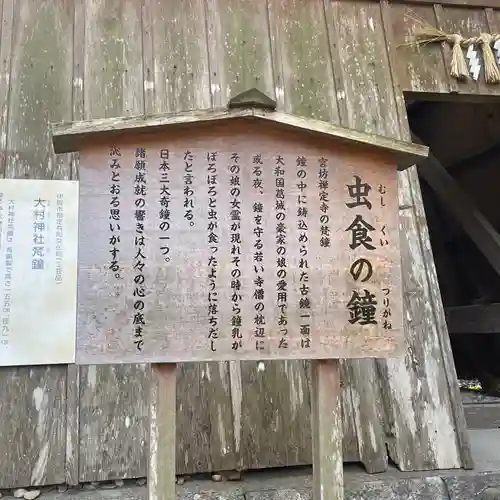 虫食の鐘
むし くい つりがね
宮坊禅定寺の梵鐘
鐘の中に鋳込められた古鏡一面は
大和国葛城の豪家の娘の愛用であった
或る夜、鐘を守る若い寺僧の枕辺に
その娘の女霊が現れその時から鐘乳が
ぼろぼろと虫が食ったように落ちだし
たと言われる。
日本三大奇鐘の一つ。
諸願成就の響きは人々の心の底まで
沁みとおる思いがする。
大村神社梵鐘